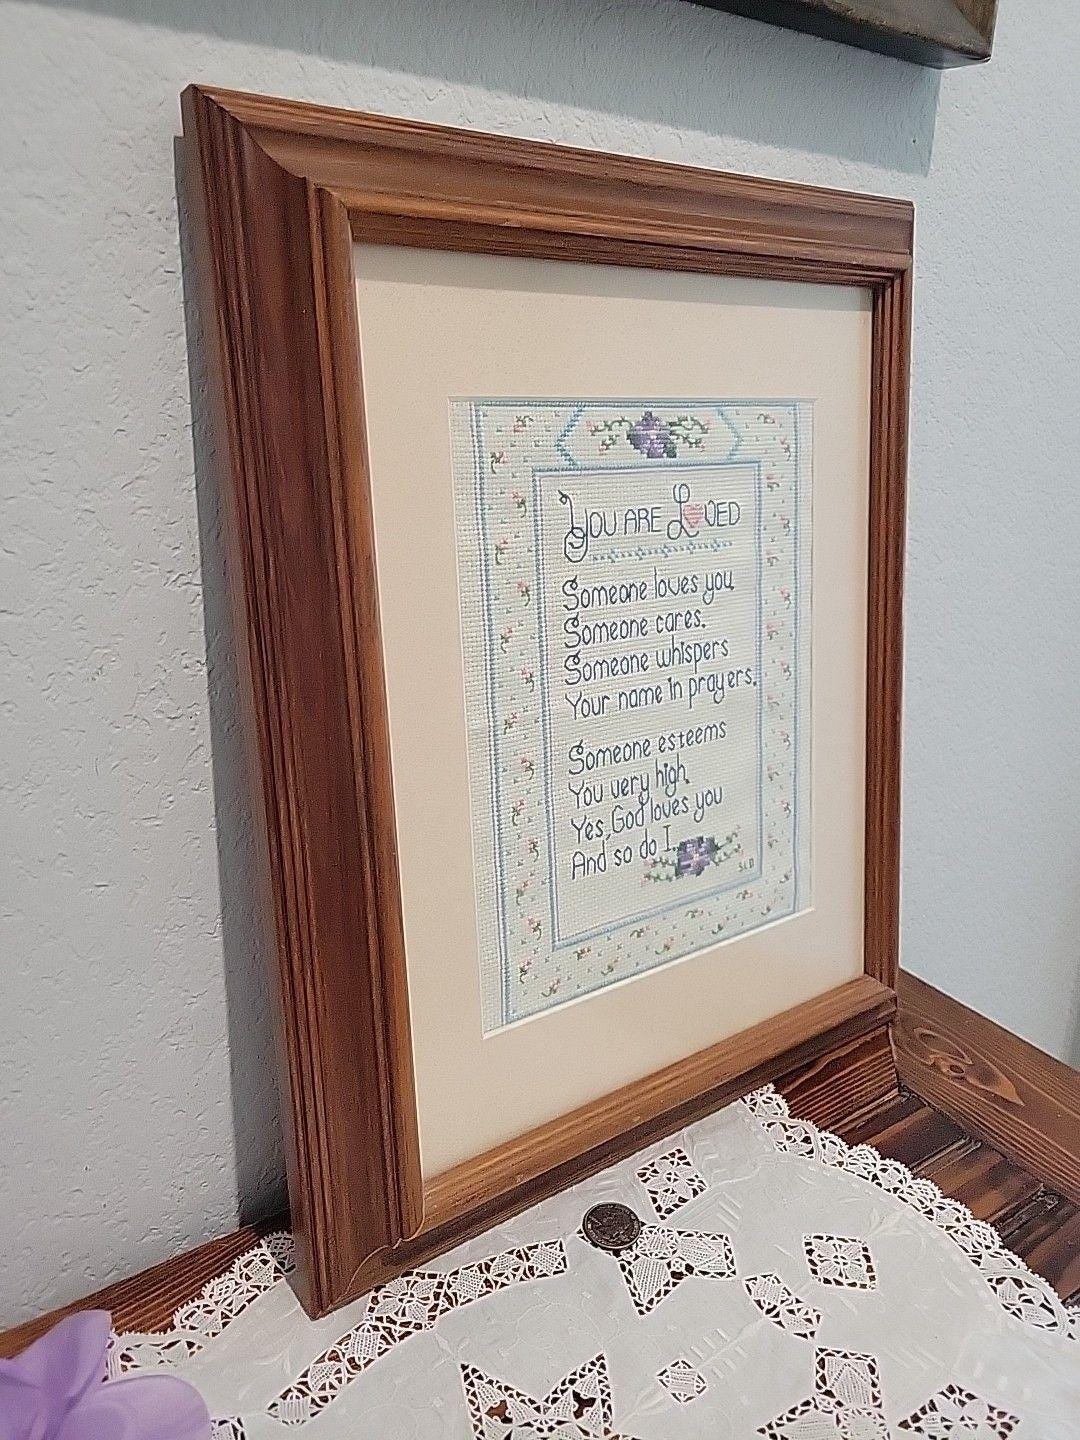 You are Loved
Someone loves you,
Someone cares.
Someone whispers
Your name in prayers.
Someone esteems
You very high.
Yes, God loves you
And so do I.
SLD